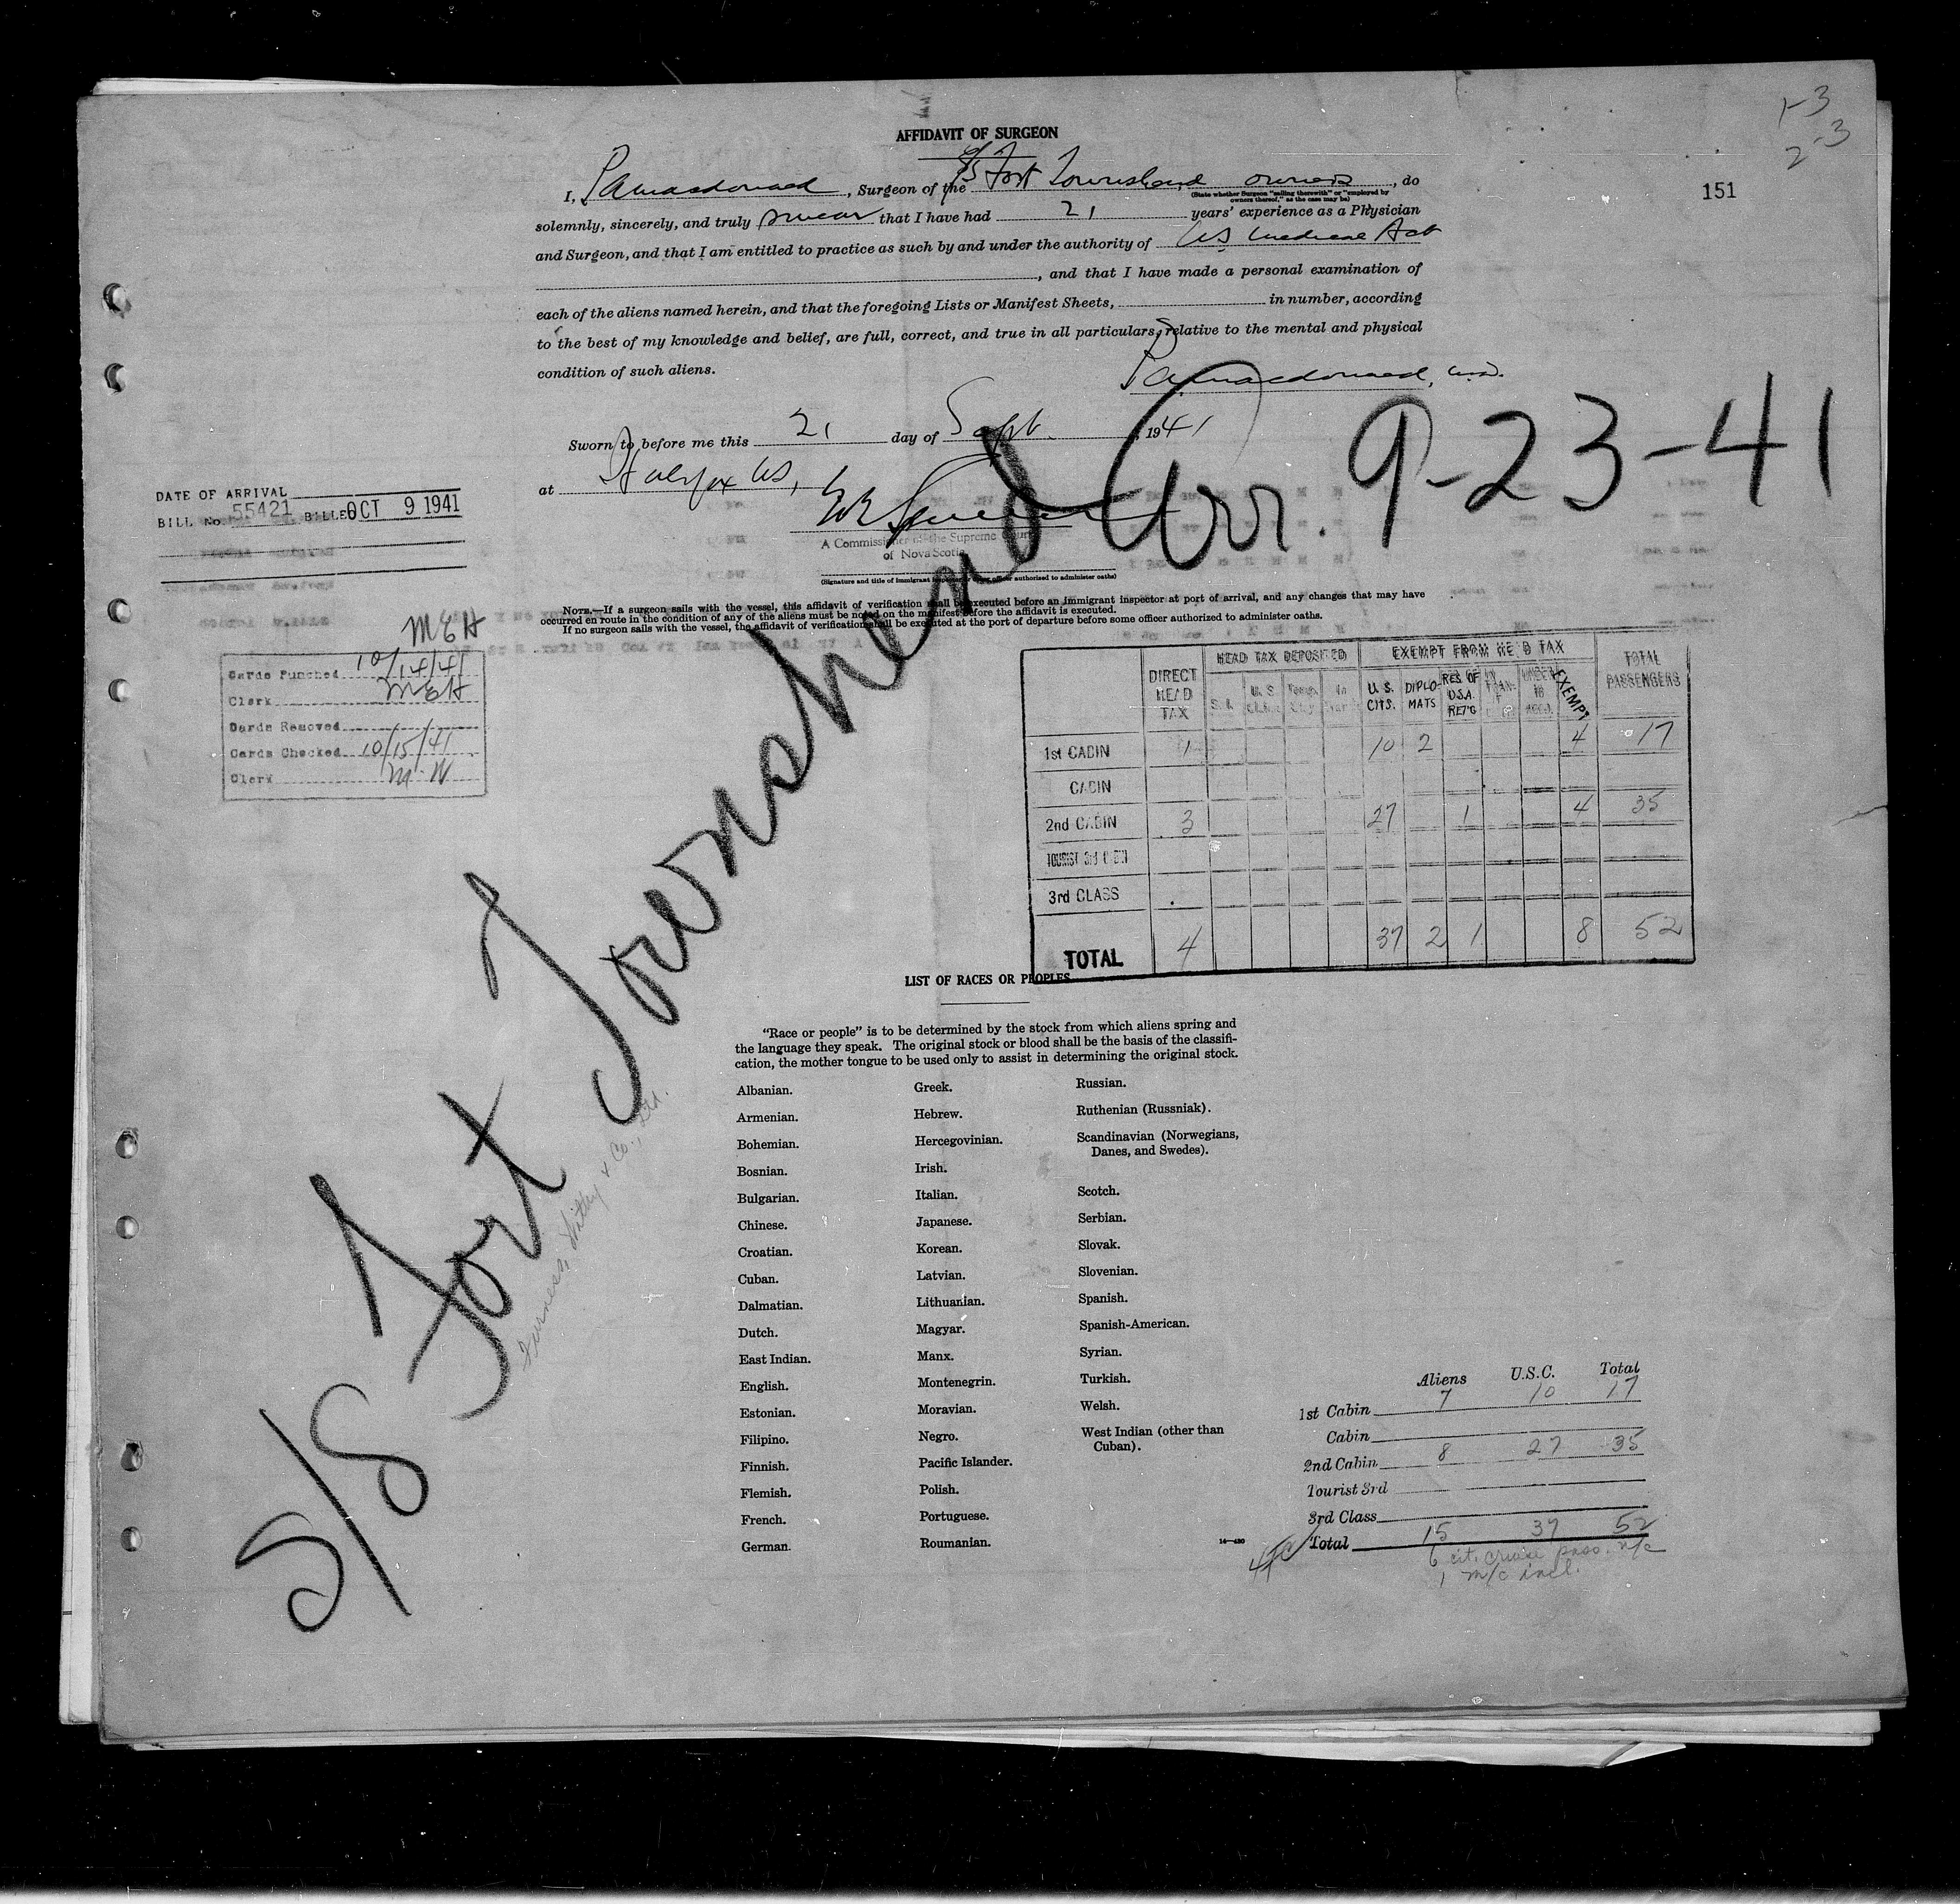 1-3
2-3
151
AFFIDAVIT OF SURGEON
I, PAMacdonald, Surgeon of the S/S Fort Townshend owners, do
(State whether Surgeon "sailing therewith" or "employed by owners thereof," as the case may be)
solemnly, sincerely, and truly swear that I have had 21 years' experience as a Physician
and Surgeon, and that I am entitled to practice as such by and under the authority of NS Medical Act
, and that I have made a personal examination of
each of the aliens named herein, and that the foregoing Lists or Manifest Sheets, in number, according
to the best of my knowledge and belief, are full, correct, and true in all particulars, relative to the mental and physical
condition of such aliens.
PAMacdonald, M.D.
Sworn to before me this 21 day of Sept. 1941
at Halifax NS,
A Commissioner of the Supreme Court
of Nova Scotia
(Signature and title of immigrant inspector or other officer authorized to administer oaths)
NOTE.—If a surgeon sails with the vessel, this affidavit of verification shall be executed before an immigrant inspector at port of arrival, and any changes that may have
occurred en route in the condition of any of the aliens must be noted on the manifest before the affidavit is executed.
If no surgeon sails with the vessel, the affidavit of verification shall be executed at the port of departure before some officer authorized to administer oaths.
DATE OF ARRIVAL
BILL No. 55421 BILLED OCT 9 1941
MEH
Cards Punched 10/14/41
Clerk MEH
Cards Removed
Cards Checked 10/15/41
Clerk M.W
S/S Fort Townshend Arr. 9-23-41
Furness, Withy & Co., Ltd.
DIRECT HEAD TAX HEAD TAX DEPOSITED EXEMPT FROM HEAD TAX TOTAL PASSENGERS
U.S. CITS. DIPLOMATS RES. OF U.S.A. RET'G UNDER 16 EXEMPT
1st CABIN 1 10 2 4 17
CABIN
2nd CABIN 3 27 1 4 35
TOURIST 3rd CABIN
3rd CLASS
TOTAL 4 37 2 1 8 52
LIST OF RACES OR PEOPLES
"Race or people" is to be determined by the stock from which aliens spring and
the language they speak. The original stock or blood shall be the basis of the classifi-
cation, the mother tongue to be used only to assist in determining the original stock.
Albanian.
Armenian.
Bohemian.
Bosnian.
Bulgarian.
Chinese.
Croatian.
Cuban.
Dalmatian.
Dutch.
East Indian.
English.
Estonian.
Filipino.
Finnish.
Flemish.
French.
German.
Greek.
Hebrew.
Hercegovinian.
Irish.
Italian.
Japanese.
Korean.
Latvian.
Lithuanian.
Magyar.
Manx.
Montenegrin.
Moravian.
Negro.
Pacific Islander.
Polish.
Portuguese.
Roumanian.
Russian.
Ruthenian (Russniak).
Scandinavian (Norwegians,
Danes, and Swedes).
Scotch.
Serbian.
Slovak.
Slovenian.
Spanish.
Spanish-American.
Syrian.
Turkish.
Welsh.
West Indian (other than
Cuban).
14—480
Aliens U.S.C. Total
1st Cabin 7 10 17
Cabin
2nd Cabin 8 27 35
Tourist 3rd
3rd Class
Total 15 37 52
6 cit. cruise pass. n/c
1 m/c incl.